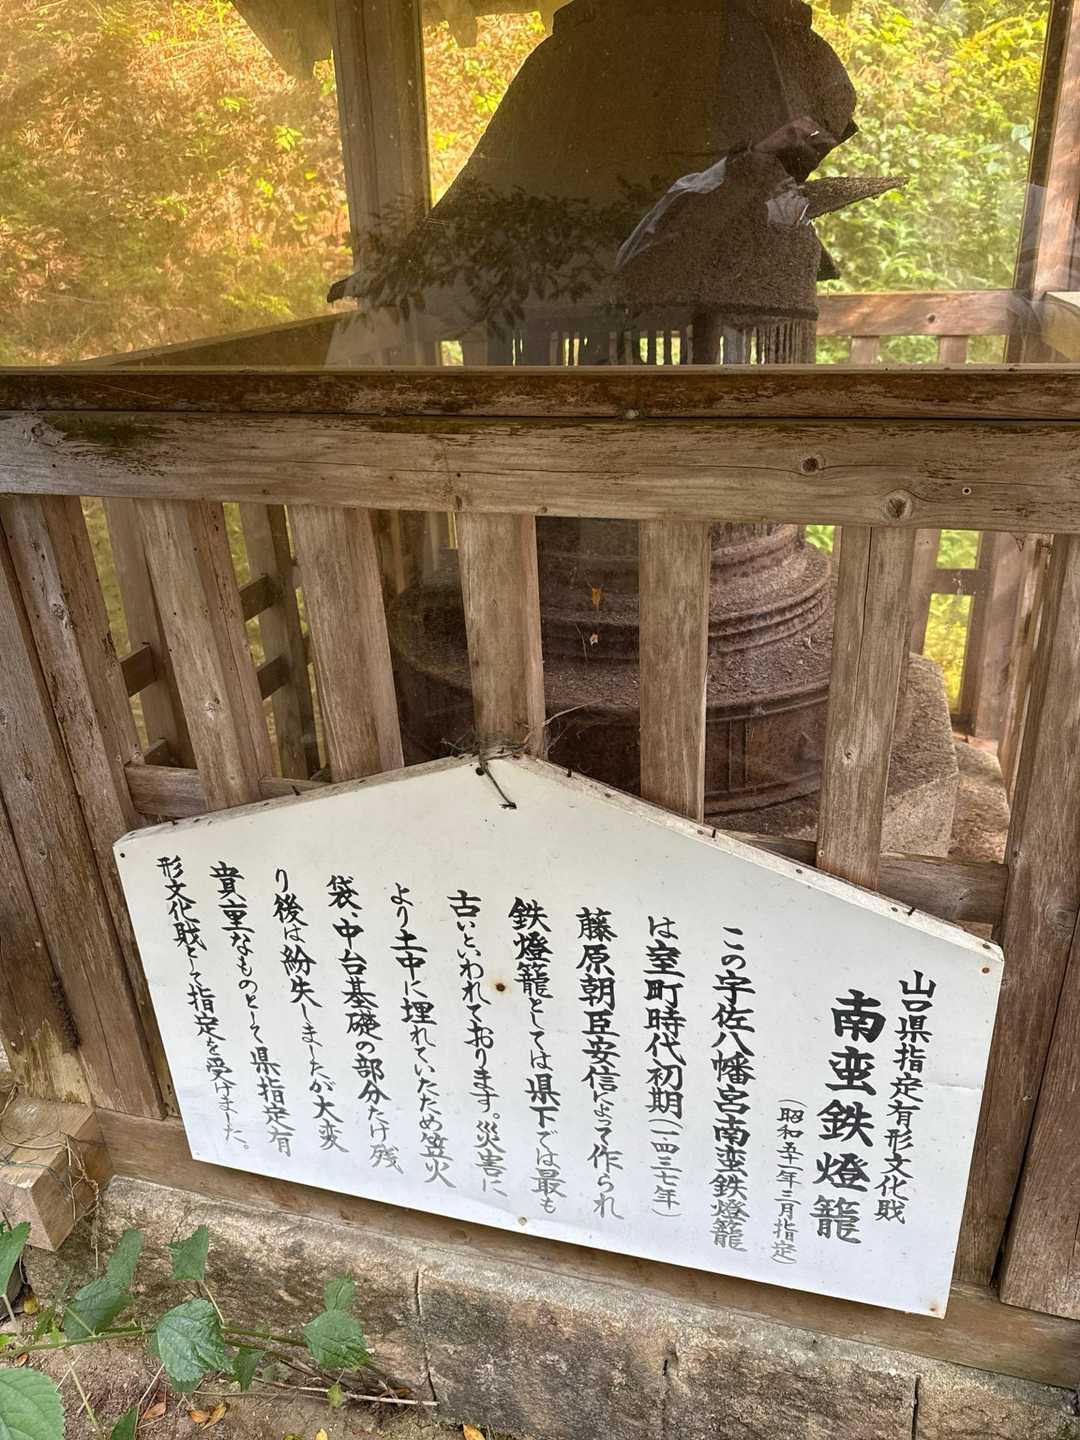 山口県指定有形文化戝
南蛮鉄燈籠
(昭和五一年三月指定)
この宇佐八幡宮南蛮鉄燈籠
は室町時代初期(一四三七年)
藤原朝臣安信によって作られ
鉄燈籠としては県下では最も
古いといわれております。災害に
より土中に埋れていたため笠火
袋、中台基礎の部分だけ残
り後は紛失しましたが大変
貴重なものとして県指定有
形文化戝として指定を受けました。